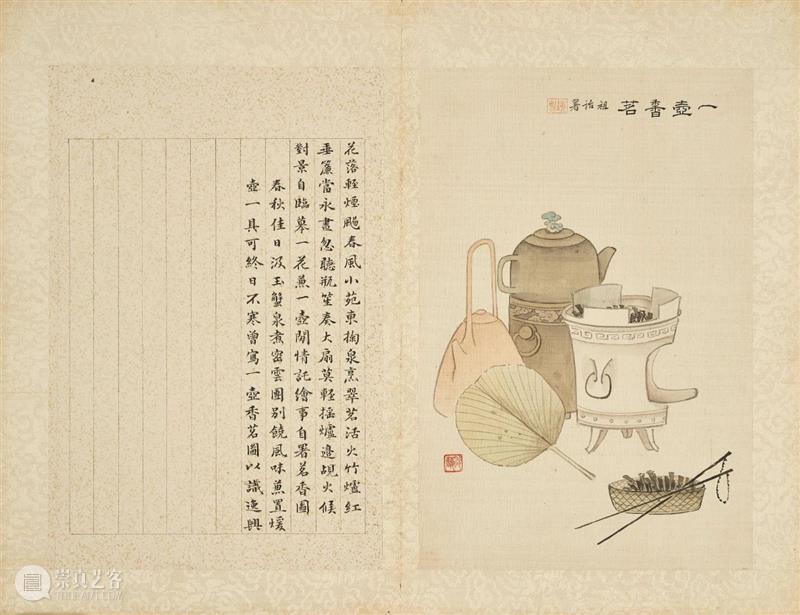 一壺香茗
祖詒署
花落輕煙颺春風小苑東掬泉烹翠茗活火竹爐紅
垂簾當永晝忽聽瓶笙奏大扇莫輕搖爐邊覘火候
對景自臨摹一花兼一壺閒情託繪事自署茗香圖
春秋佳日汲玉蟹泉煮密雲團別饒風味兼置煖
壺一具可終日不寒曾寫一壺香茗圖以識逸興
崇真艺客
WWW.TRUEART.COM